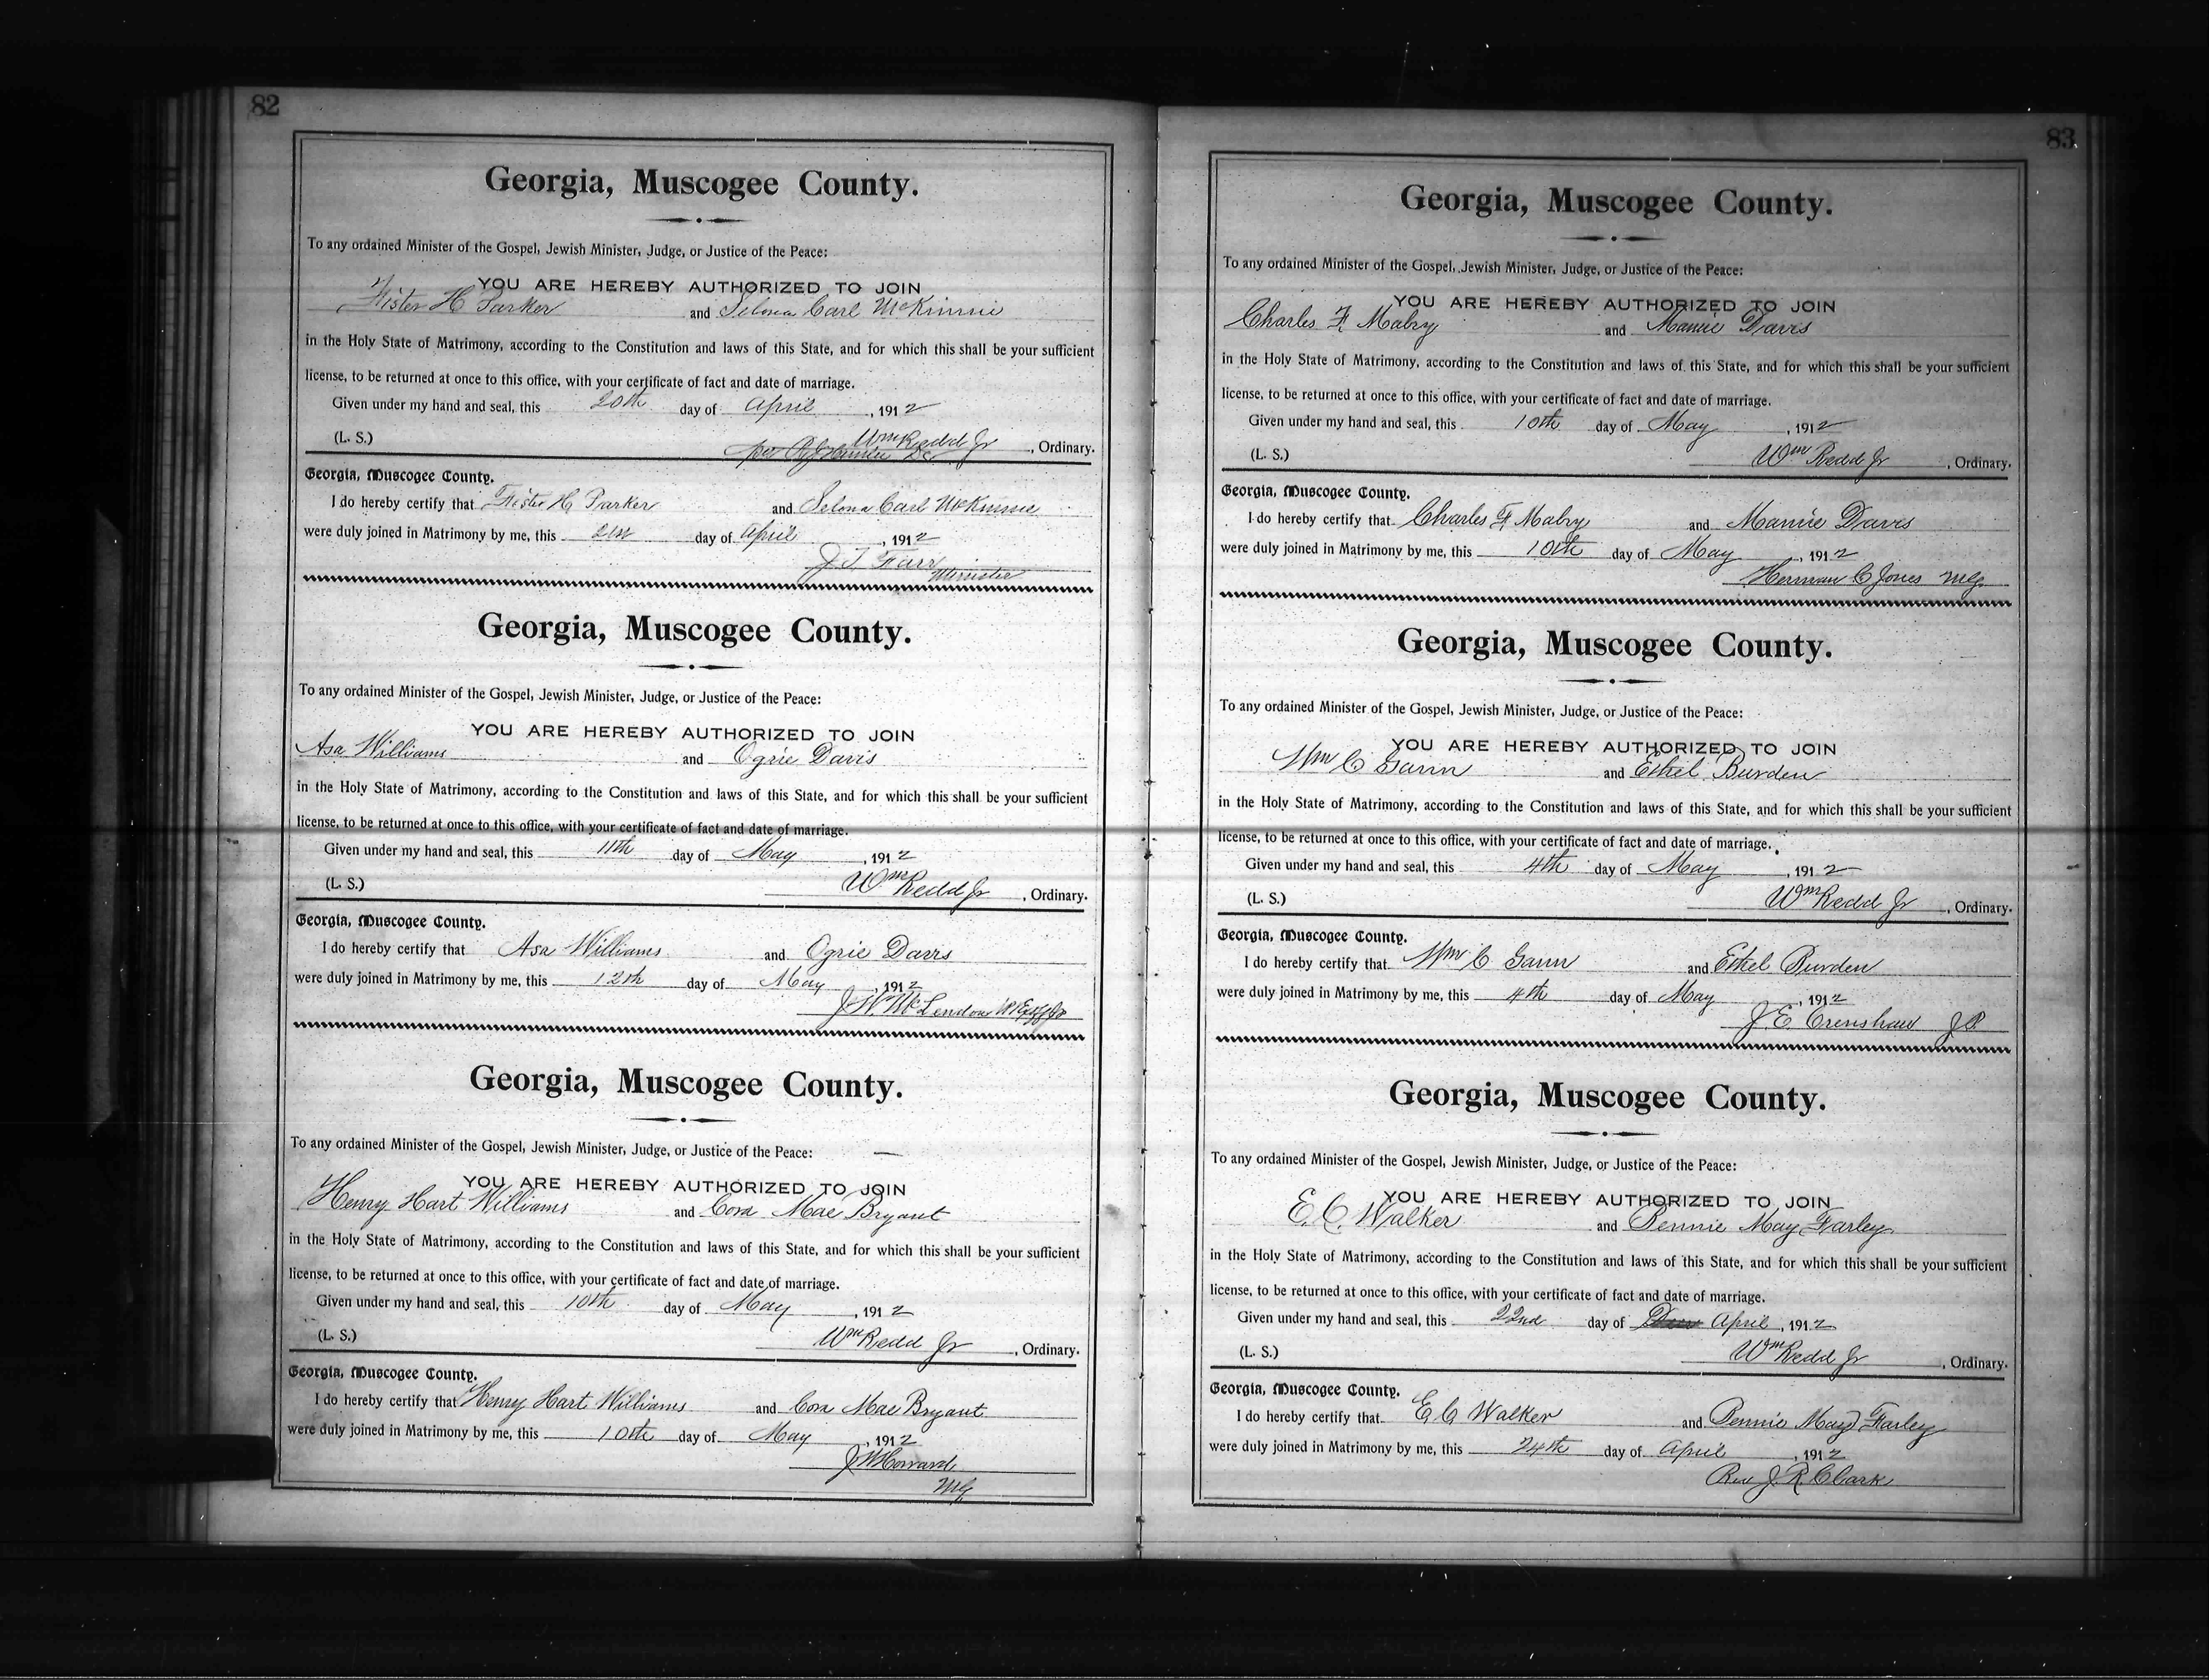 82
Georgia, Muscogee County.
To any ordained Minister of the Gospel, Jewish Minister, Judge, or Justice of the Peace:
YOU ARE HEREBY AUTHORIZED TO JOIN
H Parker and Selona Carl McKinnie
in the Holy State of Matrimony, according to the Constitution and laws of this State, and for which this shall be your sufficient
license, to be returned at once to this office, with your certificate of fact and date of marriage.
Given under my hand and seal, this 20th day of April, 1912
(L. S.) Wm Redd Jr, Ordinary.
per
Georgia, Muscogee County.
I do hereby certify that H Parker and Selona Carl McKinnie
were duly joined in Matrimony by me, this 21st day of April, 1912
J. T. Farr
Minister
Georgia, Muscogee County.
To any ordained Minister of the Gospel, Jewish Minister, Judge, or Justice of the Peace:
YOU ARE HEREBY AUTHORIZED TO JOIN
Asa Williams and Ogrie Davis
in the Holy State of Matrimony, according to the Constitution and laws of this State, and for which this shall be your sufficient
license, to be returned at once to this office, with your certificate of fact and date of marriage.
Given under my hand and seal, this 11th day of May, 1912
(L. S.) Wm Redd Jr, Ordinary.
Georgia, Muscogee County.
I do hereby certify that Asa Williams and Ogrie Davis
were duly joined in Matrimony by me, this 12th day of May, 1912
J. W. McLendon
Georgia, Muscogee County.
To any ordained Minister of the Gospel, Jewish Minister, Judge, or Justice of the Peace:
YOU ARE HEREBY AUTHORIZED TO JOIN
Henry Hart Williams and Cora Mae Bryant
in the Holy State of Matrimony, according to the Constitution and laws of this State, and for which this shall be your sufficient
license, to be returned at once to this office, with your certificate of fact and date of marriage.
Given under my hand and seal, this 10th day of May, 1912
(L. S.) Wm Redd Jr, Ordinary.
Georgia, Muscogee County.
I do hereby certify that Henry Hart Williams and Cora Mae Bryant
were duly joined in Matrimony by me, this 10th day of May, 1912
J W Howard
MG
83
Georgia, Muscogee County.
To any ordained Minister of the Gospel, Jewish Minister, Judge, or Justice of the Peace:
YOU ARE HEREBY AUTHORIZED TO JOIN
Charles F. Mabry and Mamie Davis
in the Holy State of Matrimony, according to the Constitution and laws of this State, and for which this shall be your sufficient
license, to be returned at once to this office, with your certificate of fact and date of marriage.
Given under my hand and seal, this 10th day of May, 1912
(L. S.) Wm Redd Jr, Ordinary.
Georgia, Muscogee County.
I do hereby certify that Charles F. Mabry and Mamie Davis
were duly joined in Matrimony by me, this 10th day of May, 1912
Herman C Jones MG
Georgia, Muscogee County.
To any ordained Minister of the Gospel, Jewish Minister, Judge, or Justice of the Peace:
YOU ARE HEREBY AUTHORIZED TO JOIN
Wm C Gann and Ethel Burden
in the Holy State of Matrimony, according to the Constitution and laws of this State, and for which this shall be your sufficient
license, to be returned at once to this office, with your certificate of fact and date of marriage.
Given under my hand and seal, this 4th day of May, 1912
(L. S.) Wm Redd Jr, Ordinary.
Georgia, Muscogee County.
I do hereby certify that Wm C Gann and Ethel Burden
were duly joined in Matrimony by me, this 4th day of May, 1912
J E Crenshaw JP
Georgia, Muscogee County.
To any ordained Minister of the Gospel, Jewish Minister, Judge, or Justice of the Peace:
YOU ARE HEREBY AUTHORIZED TO JOIN
E. C. Walker and Bennie May Farley
in the Holy State of Matrimony, according to the Constitution and laws of this State, and for which this shall be your sufficient
license, to be returned at once to this office, with your certificate of fact and date of marriage.
Given under my hand and seal, this 22nd day of April, 1912
(L. S.) Wm Redd Jr, Ordinary.
Georgia, Muscogee County.
I do hereby certify that E C Walker and Bennie May Farley
were duly joined in Matrimony by me, this 24th day of April, 1912
Rev J. R. Clark